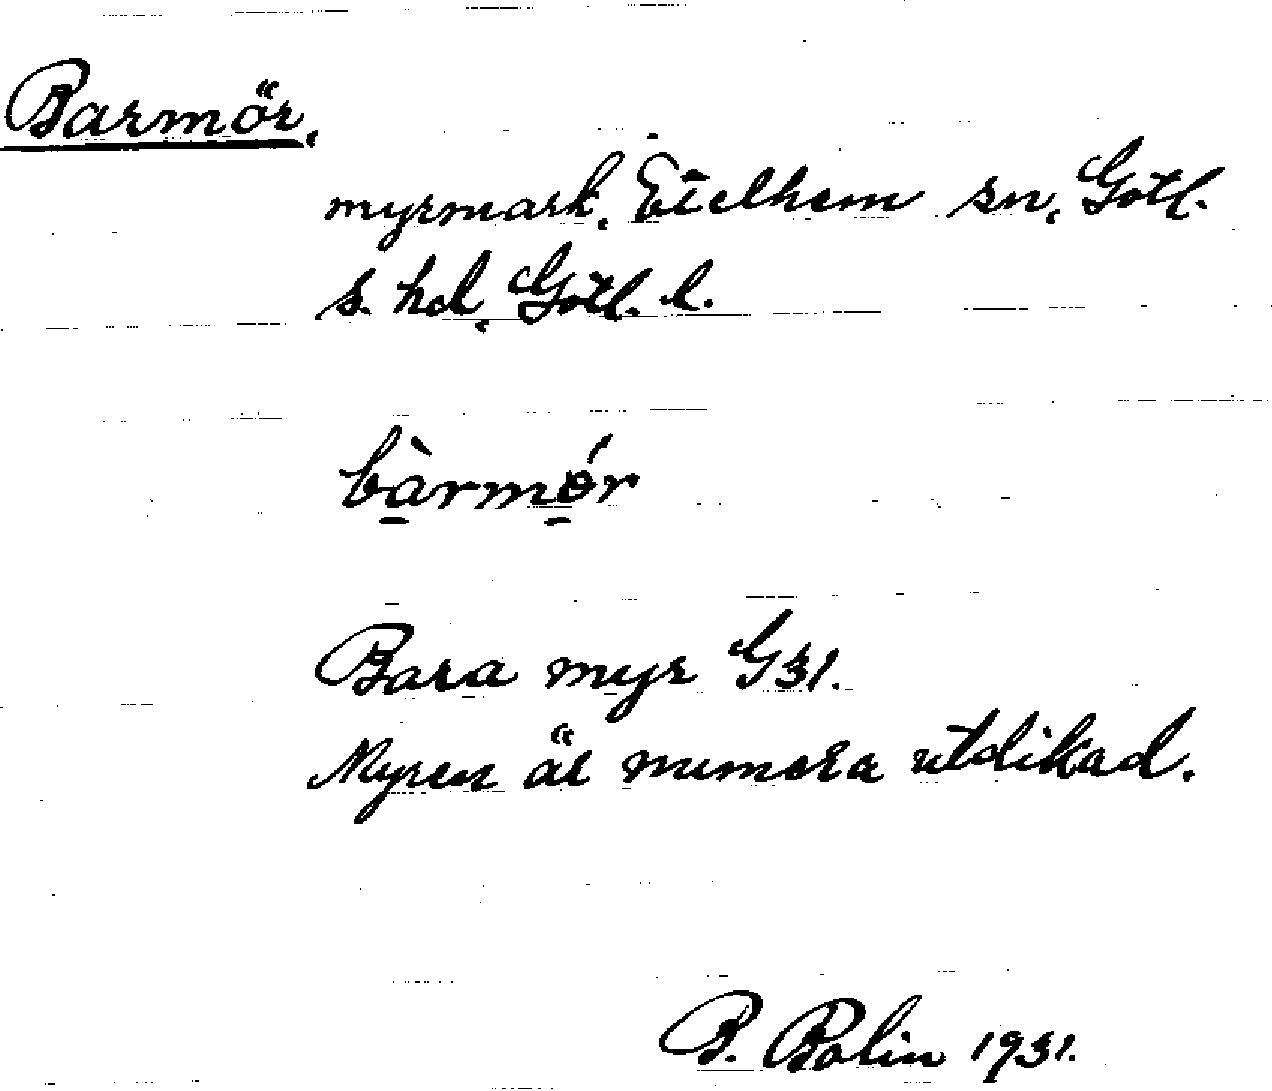 Barmör,
myrmark, Etelhem sn, Gotl.
s. hd, Gotl. l.
bàrmǿr
Bara myr G 31.
Myren är numera utdikad.
B. Bolin 1931.